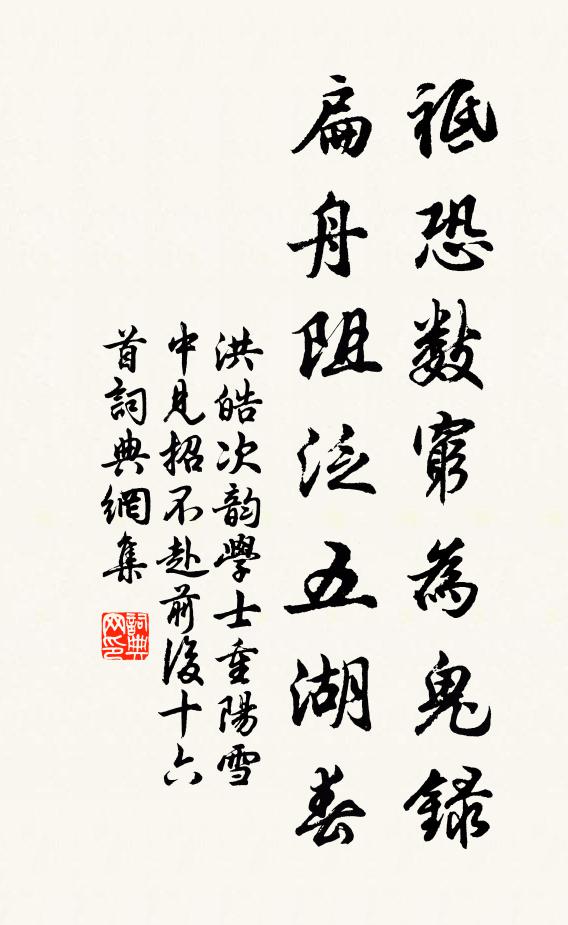 祗恐數窮為鬼錄
扁舟阻泛五湖春
洪皓次韵學士重陽雪
中見招不赴前後十六
首詞典網集
詞典网印